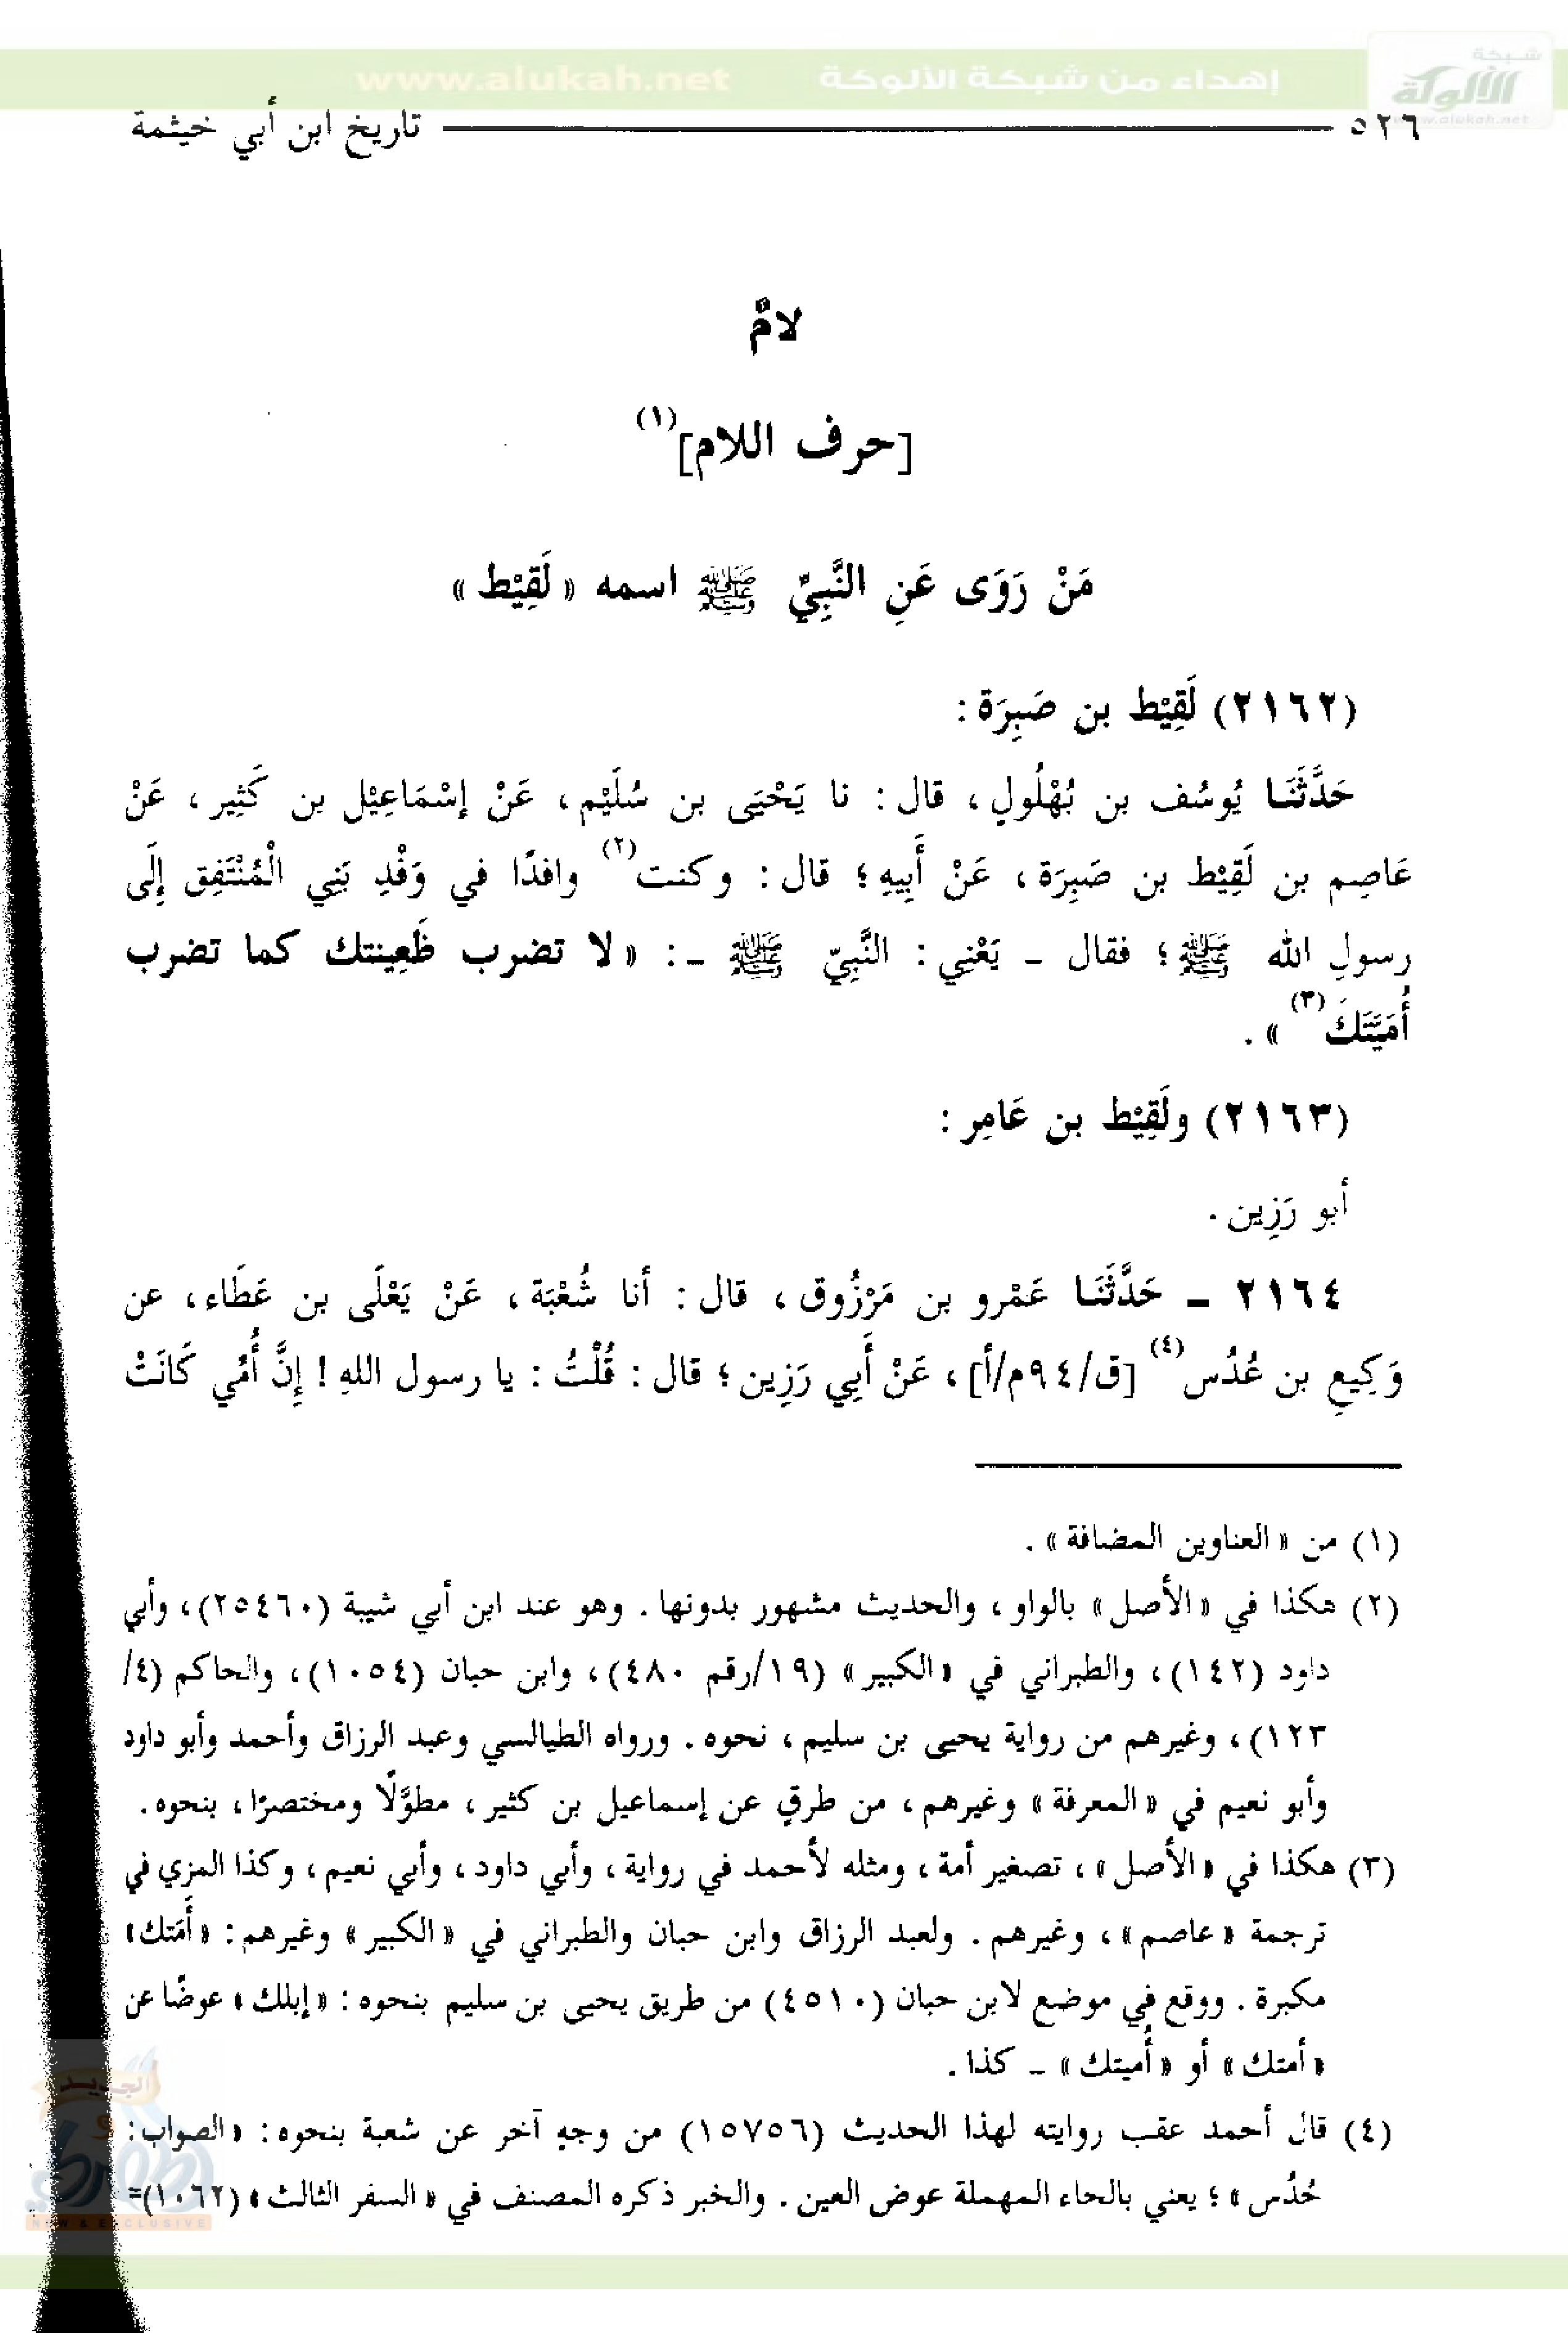 www.alukah.net إهداء من شبكة الألوكة شبكة الألوكة
www.alukah.net
٥٢٦ تاريخ ابن أبي خيثمة
لامٌ
[حرف اللام](١)
مَنْ رَوَى عَنِ النَّبِيِّ ﷺ اسمه « لَقِيْط »
(٢١٦٢) لَقِيْط بن صَبِرَة :
حَدَّثَنَا يُوسُف بن بُهْلُولِ ، قال : نا يَحْيَى بن سُلَيْم ، عَنْ إسْمَاعِيْل بن كَثِير ، عَنْ
عَاصِم بن لَقِيْط بن صَبِرَة ، عَنْ أَبِيهِ ؛ قال : وكنت(٢) وافدًا في وَفْدِ بَنِي الْمُنْتَفِق إلَى
رسولِ الله ﷺ ؛ فقال - يَعْنِي : النَّبِيّ ﷺ - : « لا تضرب ظَعِينتك كما تضرب
أُمَيَّتَكَ(٣) » .
(٢١٦٣) ولَقِيْط بن عَامِر :
أبو رَزِين .
٢١٦٤ - حَدَّثَنَا عَمْرو بن مَرْزُوق ، قال : أنا شُعْبَة ، عَنْ يَعْلَى بن عَطَاء ، عن
وَكِيعِ بن عُدُس(٤) [ق/٩٤م/أ] ، عَنْ أَبِي رَزِين ؛ قال : قُلْتُ : يا رسول اللهِ ! إنَّ أُمِّي كَانَتْ
(١) من « العناوين المضافة » .
(٢) هكذا في « الأصل » بالواو ، والحديث مشهور بدونها . وهو عند ابن أبي شيبة (٢٥٤٦٠) ، وأبي
داود (١٤٢) ، والطبراني في « الكبير » (١٩/رقم ٤٨٠) ، وابن حبان (١٠٥٤) ، والحاكم (٤/
١٢٣) ، وغيرهم من رواية يحيى بن سليم ، نحوه . ورواه الطيالسي وعبد الرزاق وأحمد وأبو داود
وأبو نعيم في « المعرفة » وغيرهم ، من طرقٍ عن إسماعيل بن كثير ، مطوَّلًا ومختصرًا ، بنحوه .
(٣) هكذا في « الأصل » ، تصغير أمة ، ومثله لأحمد في رواية ، وأبي داود ، وأبي نعيم ، وكذا المزي في
ترجمة « عاصم » ، وغيرهم . ولعبد الرزاق وابن حبان والطبراني في « الكبير » وغيرهم : « أَمَتك »
مكبرة . ووقع في موضع لابن حبان (٤٥١٠) من طريق يحيى بن سليم بنحوه : « إبلك » عوضًا عن
« أمتك » أو « أُميتك » - كذا .
(٤) قال أحمد عقب روايته لهذا الحديث (١٥٧٥٦) من وجهٍ آخر عن شعبة بنحوه : « الصواب :
حُدُس » ؛ يعني بالحاء المهملة عوض العين . والخبر ذكره المصنف في « السفر الثالث » (١٠٦٢)=
الجديد
NEW & EXCLUSIVE